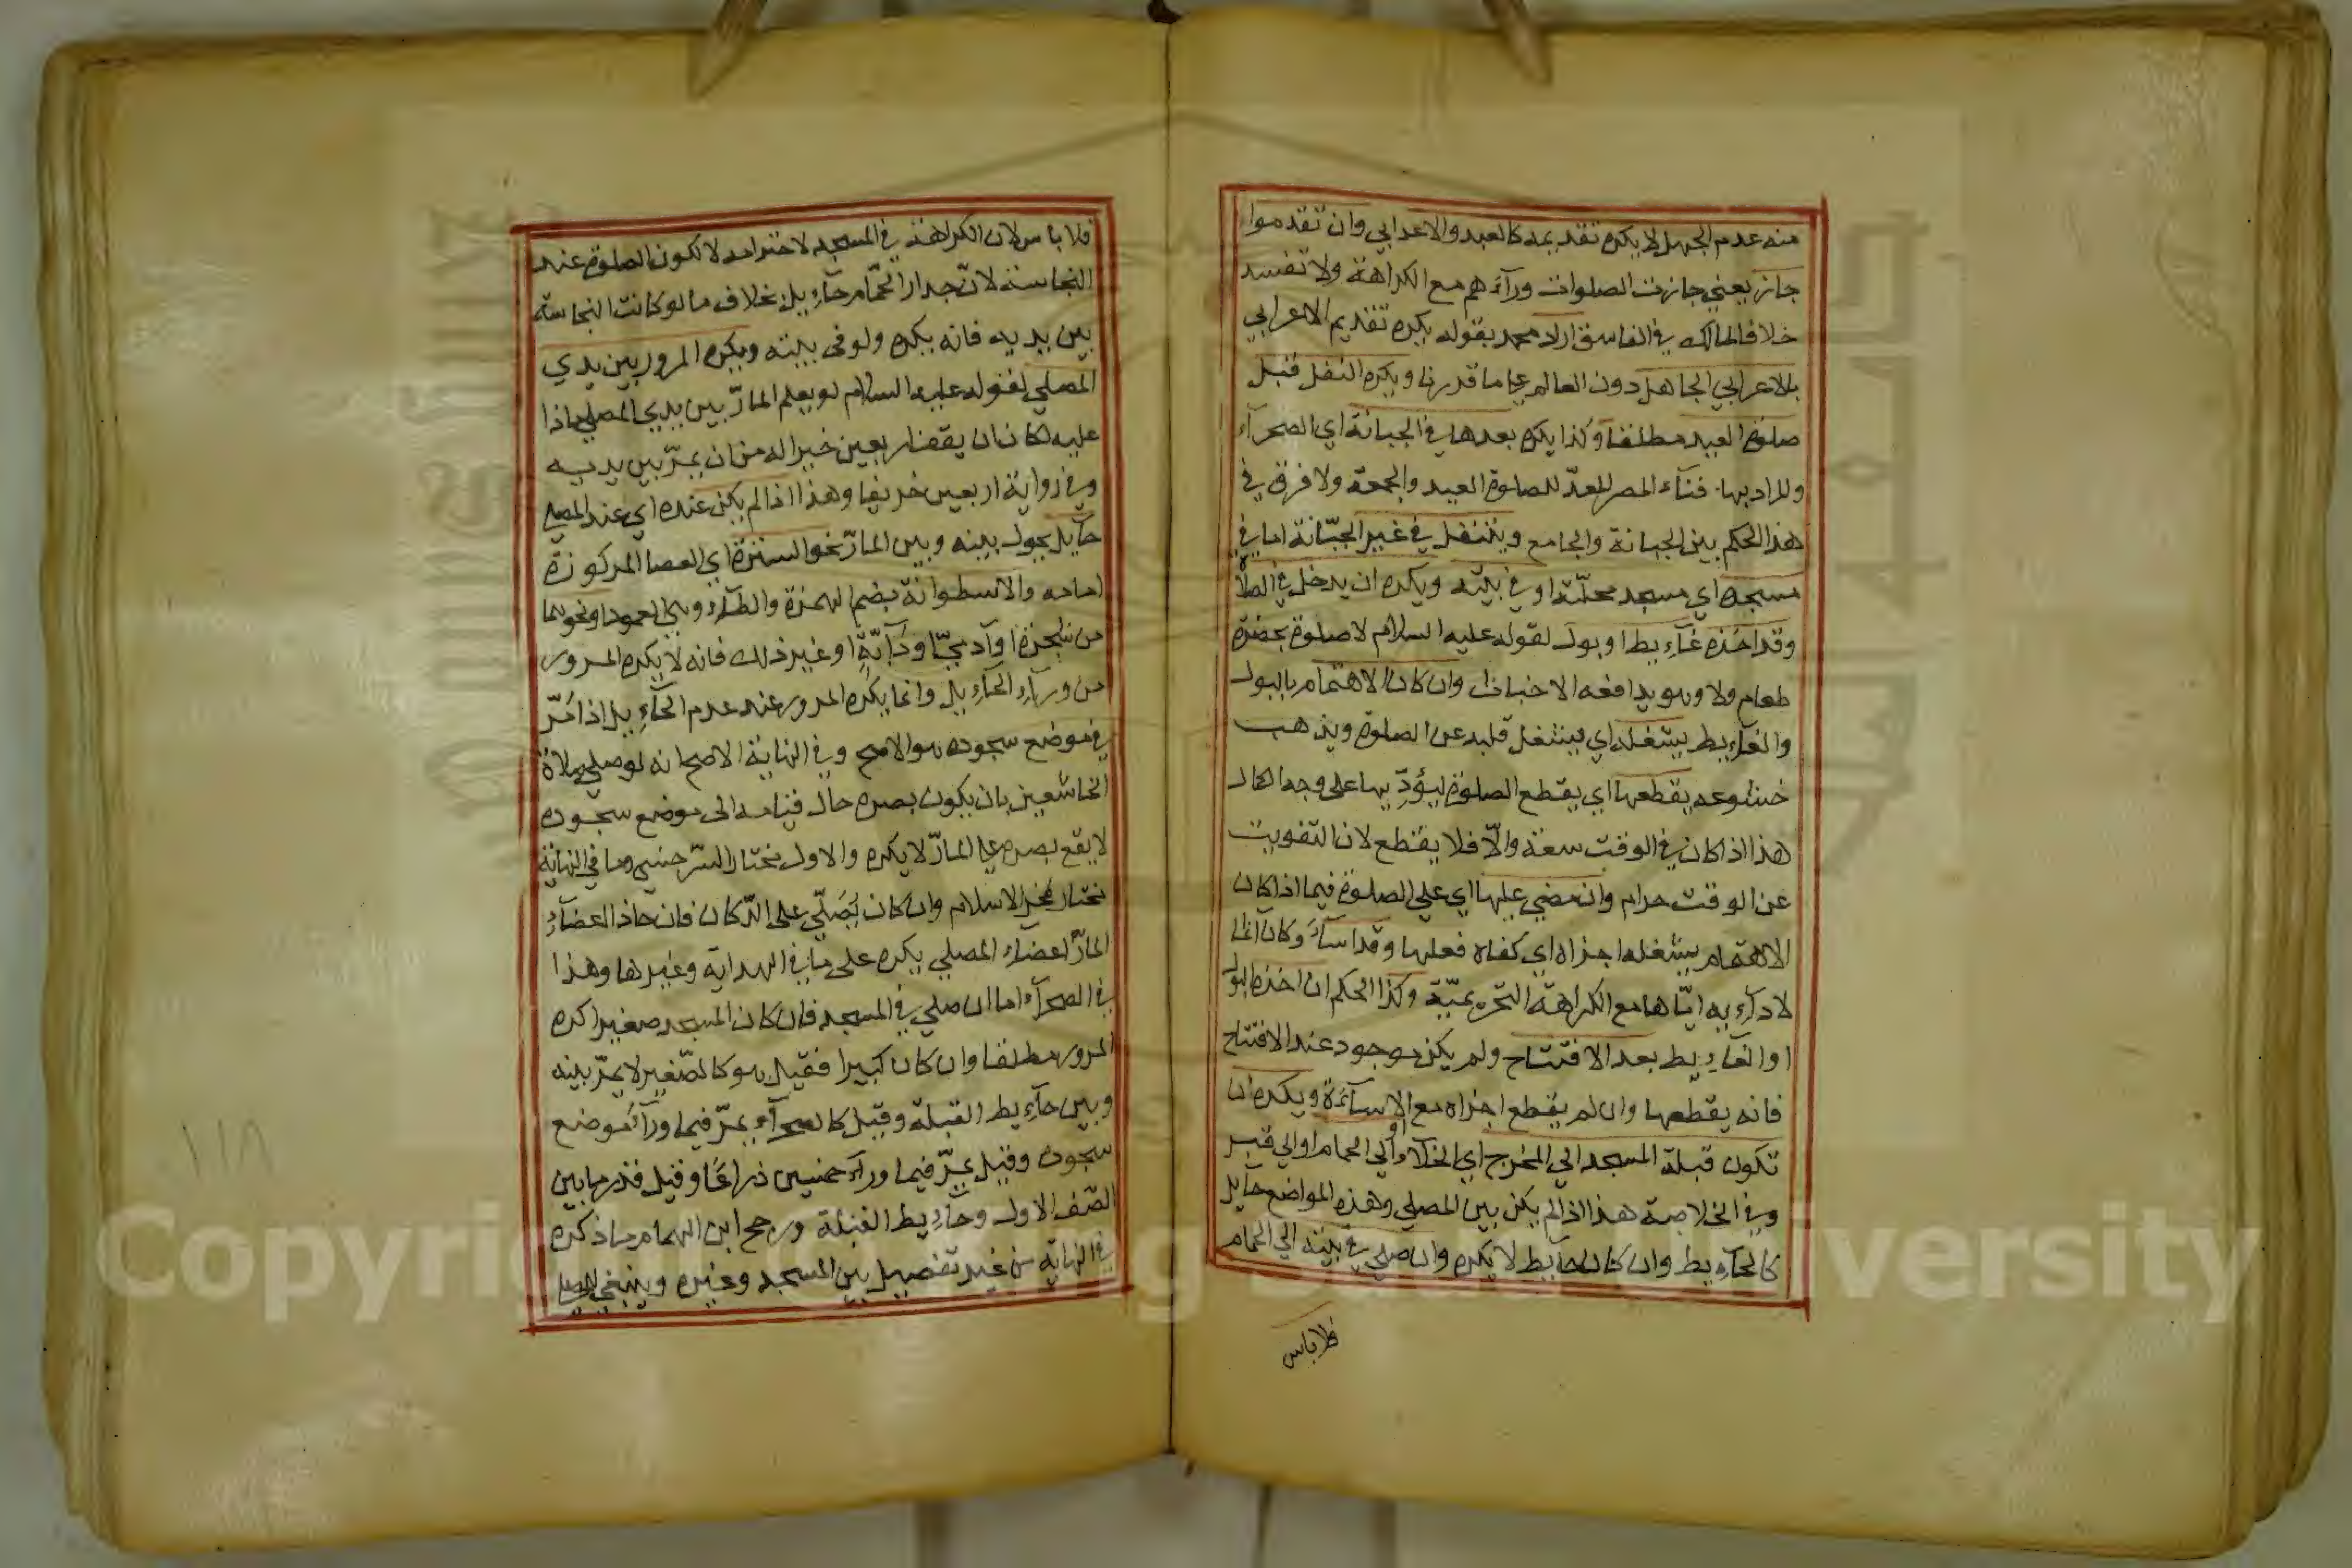 منه عدم الجهل لا يكره تقديمه كالعبد والاعرابي وان تقدموا
جاز يعني جازت الصلوات ورآءهم مع الكراهة ولا تفسد
خلافا لمالك في الفاسق اراد محمد بقوله يكره تقديم الاعرابي
بالاعرابي الجاهل دون العالم علي ما قدرنا ويكره النفل قبل
صلوة العيد مطلقا وكذا يكره بعدها في الجبانة اي الصحرآء
والمراد بها فنآء المصر المعدّ لصلوة العيد والجمعة ولا فرق في
هذا الحكم بين الجبانة والجامع ويتنفل في غير الجبّانة اما في
مسجده اي مسجد محلّته او في بيته ويكره ان يدخل في الصلاة
وقد اخذه غآءيط او بول لقوله عليه السلام لا صلوة بحضرة
طعام ولا وهو يدافعه الاخبثان وان كان الاهتمام بالبول
والغآءيط يشغله اي يشغل قلبه عن الصلوة ويذهب
خشوعه يقطعها اي يقطع الصلوة ليؤدّيها على وجه الكمال
هذا اذا كان في الوقت سعة والّا فلا يقطع لان التفويت
عن الوقت حرام وان مضي عليها اي علي الصلوة فيما اذا كان
الاهتمام يشغله اجزاه اي كفاه فعلها وقد اسآء وكان آثما
لادآءيه ايّاها مع الكراهة التحريميّة وكذا الحكم ان اخذه البول
او الغآءيط بعد الافتتاح ولم يكن موجود عند الافتتاح
فانه يقطعها وان لم يقطع اجزاه مع الاسآءة ويكره ان
تكون قبلة المسجد الي المخرج اي الخلآء او الي الحمام او الي قبر
وفي الخلاصة هذا اذا لم يكن بين المصلي وهذه المواضع حآيل
كالحآءيط وان كان حآيط لا يكره وان صلي في بيته الي الحمام
فلا باس
فلا باس لان الكراهة في المسجد لاحترامه لا لكون الصلوة عند
النجاسة لانّ جدار الحمّام حآءيل بخلاف ما لو كانت النجاسة
بين يديه فانه يكره ولو في بيته ويكره المرور بين يدي
المصلي لقوله عليه السلام لو يعلم المارّ بين يدي المصلي ماذا
عليه لكان ان يقف اربعين خيرا له من ان يمرّ بين يديه
وفي رواية اربعين خريفا وهذا اذا لم يكن عنده اي عند المصلي
حآيل يحول بينه وبين المارّ نحو السترة اي العصا المركوزة
امامه والاسطوانة بضم الهمزة والطآء وهي العمود او نحوهما
من شجرة او آدميّ او دآبّة او غير ذلك فانه لا يكره المرور
من ورآء الحآءيل وانما يكره المرور عند عدم الحآءيل اذا مرّ
في موضع سجوده هو الاصح وفي النهاية الاصح انه لو صلي صلاة
الخاشعين بان يكون بصره حال قيامه الى موضع سجوده
لا يقع بصره علي المارّ لا يكره والاول مختار السّرخسي وما في النهاية
مختار فخر الاسلام وان كان يصلّي على الدّكان فان حاذا اعضآء
المارّ اعضآء المصلي يكره على ما في الهداية وغيرها وهذا
في الصحرآء اما ان صلي في المسجد فان كان المسجد صغيرا كره
المرور مطلقا وان كان كبيرا فقيل هو كالصّغير لا يمرّ بينه
وبين حآءيط القبلة وقيل كالصحرآء يمرّ فيما ورآء موضع
سجوده وقيل يمرّ فيما ورآء خمسين ذراعا وقيل قدر ما بين
الصّف الاول وحآءيط القبلة ورجح ابن الهمام ما ذكره
في النهاية من غير تفصيل بين المسجد وغيره وينبغي للمصلي
١١٨